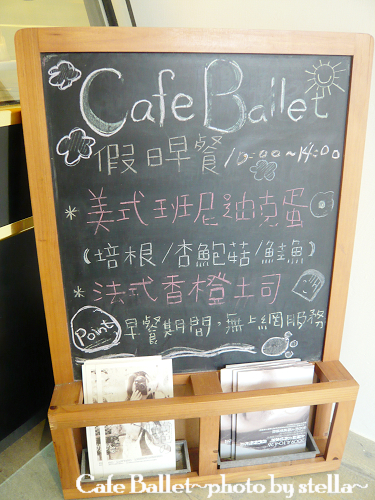 Cafe Ballet
假日早餐/10:00~14:00
*美式班尼迪克蛋
(培根/杏鮑菇/鮭魚)
*法式香橙土司
Point 早餐期間,無上網服務
Cafe Ballet~photo by stella~